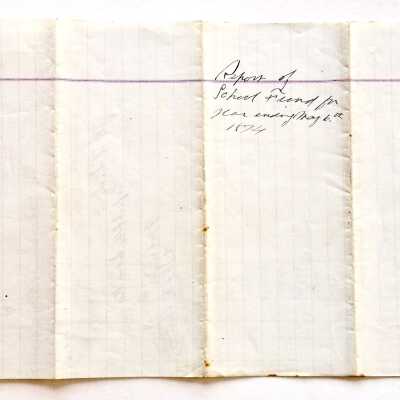 Report of
School Fund for
Year ending May 6th
1874